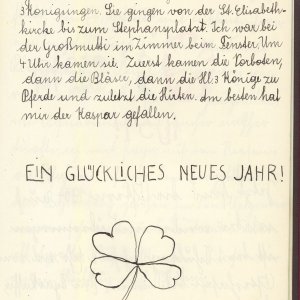 3 Königinnen. Sie gingen von der St. Elisabeth-
kirche bis zum Stephansplatzt. Ich war bei
der Großmutti im Zimmer beim Fenster. Um
4 Uhr kamen sie. Zuerst kamen die Vorboten,
dann die Bläser, dann die Hl. 3 Könige zu
Pferde und zuletzt die Hirten. Am besten hat
mir der Kaspar gefallen.
EIN GLÜCKLICHES NEUES JAHR!